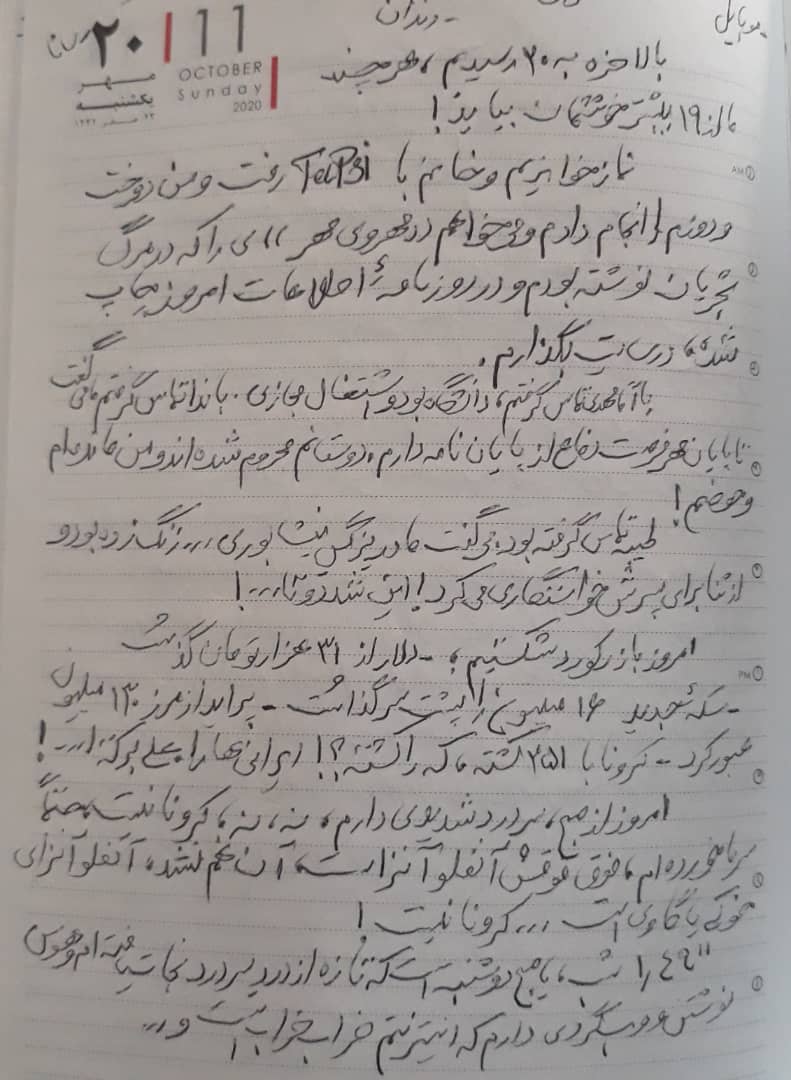 موبایل
- دندان
۲۰ | 11
مهر
OCTOBER
یکشنبه
Sunday
2020
۲۳ صفر ۱۴۴۲
بالاخره به ۲۰ رسیدیم، هر چند
ما از ۱۹ بیشتر خوشمان بیاید!
نماز خواندیم و خانم با TaPSi رفت و من دوخت
و دوزم را انجام دادم و می‌خواهم در مهروی مهر )) ای را که در مرگ
نوشته بودم و در روزنامهٔ اطلاعات امروز چاپ
شده، در سایت بگذارم.
با آقا مهدی تماس گرفتم، دانشگاه بود و اشتغال مجازی. با ندا تماس گرفتم می گفت
تا پایان مهر فرصت دفاع از پایان نامه دارم، دوستانم محروم شده اند و من مانده ام
و حوضم!
طیبه تماس گرفته بود، می گفت مادر نرگس نیشابوری ... زنگ زده بود و
از ثنا برای پسرش خواستگاری می کرد! این شد دوتا...!
امروز باز رکورد شکستیم، - دلار از ۳۱ هزار تومان گذشت
- سکهٔ جدید ۱۶ میلیون را پشت سر گذاشت - پراید از مرز ۱۳۰ میلیون
عبور کرد - کرونا با ۲۵۱ کشته، که را کشته؟! ایرانی ها را، علی برکة ا...!
امروز از صبح، سردرد شدیدی دارم، نه، نه، کرونا نیست، حتماً
سرما خورده ام، فوق فوقش آنفلوآنزا ست، آن هم نشد، آنفلوآنزای
خوکی یا گاوی است ... کرونا نیست!
شب، یا صبح دوشنبه است که تازه از درد سردرد نجات یافته ام و هوس
نوشتن و وبگردی دارم که اینترنتم خراب خراب است و ...